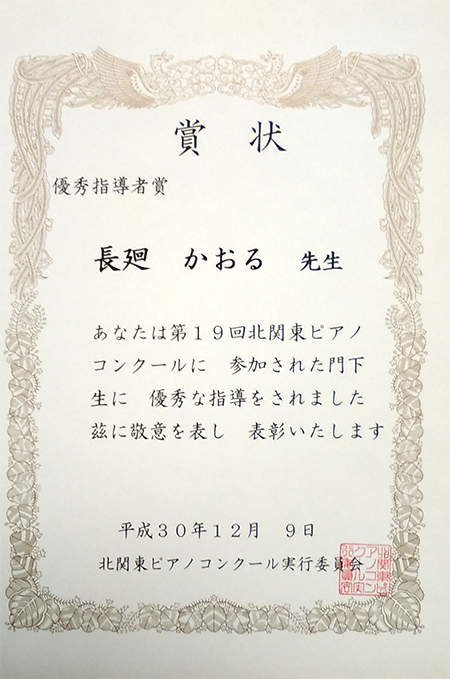 賞 状
優秀指導者賞
長廻 かおる 先生
あなたは第19回北関東ピアノ
コンクールに 参加された門下
生に 優秀な指導をされました
茲に敬意を表し 表彰いたします
平成30年12月 9日
北関東ピアノコンクール実行委員会